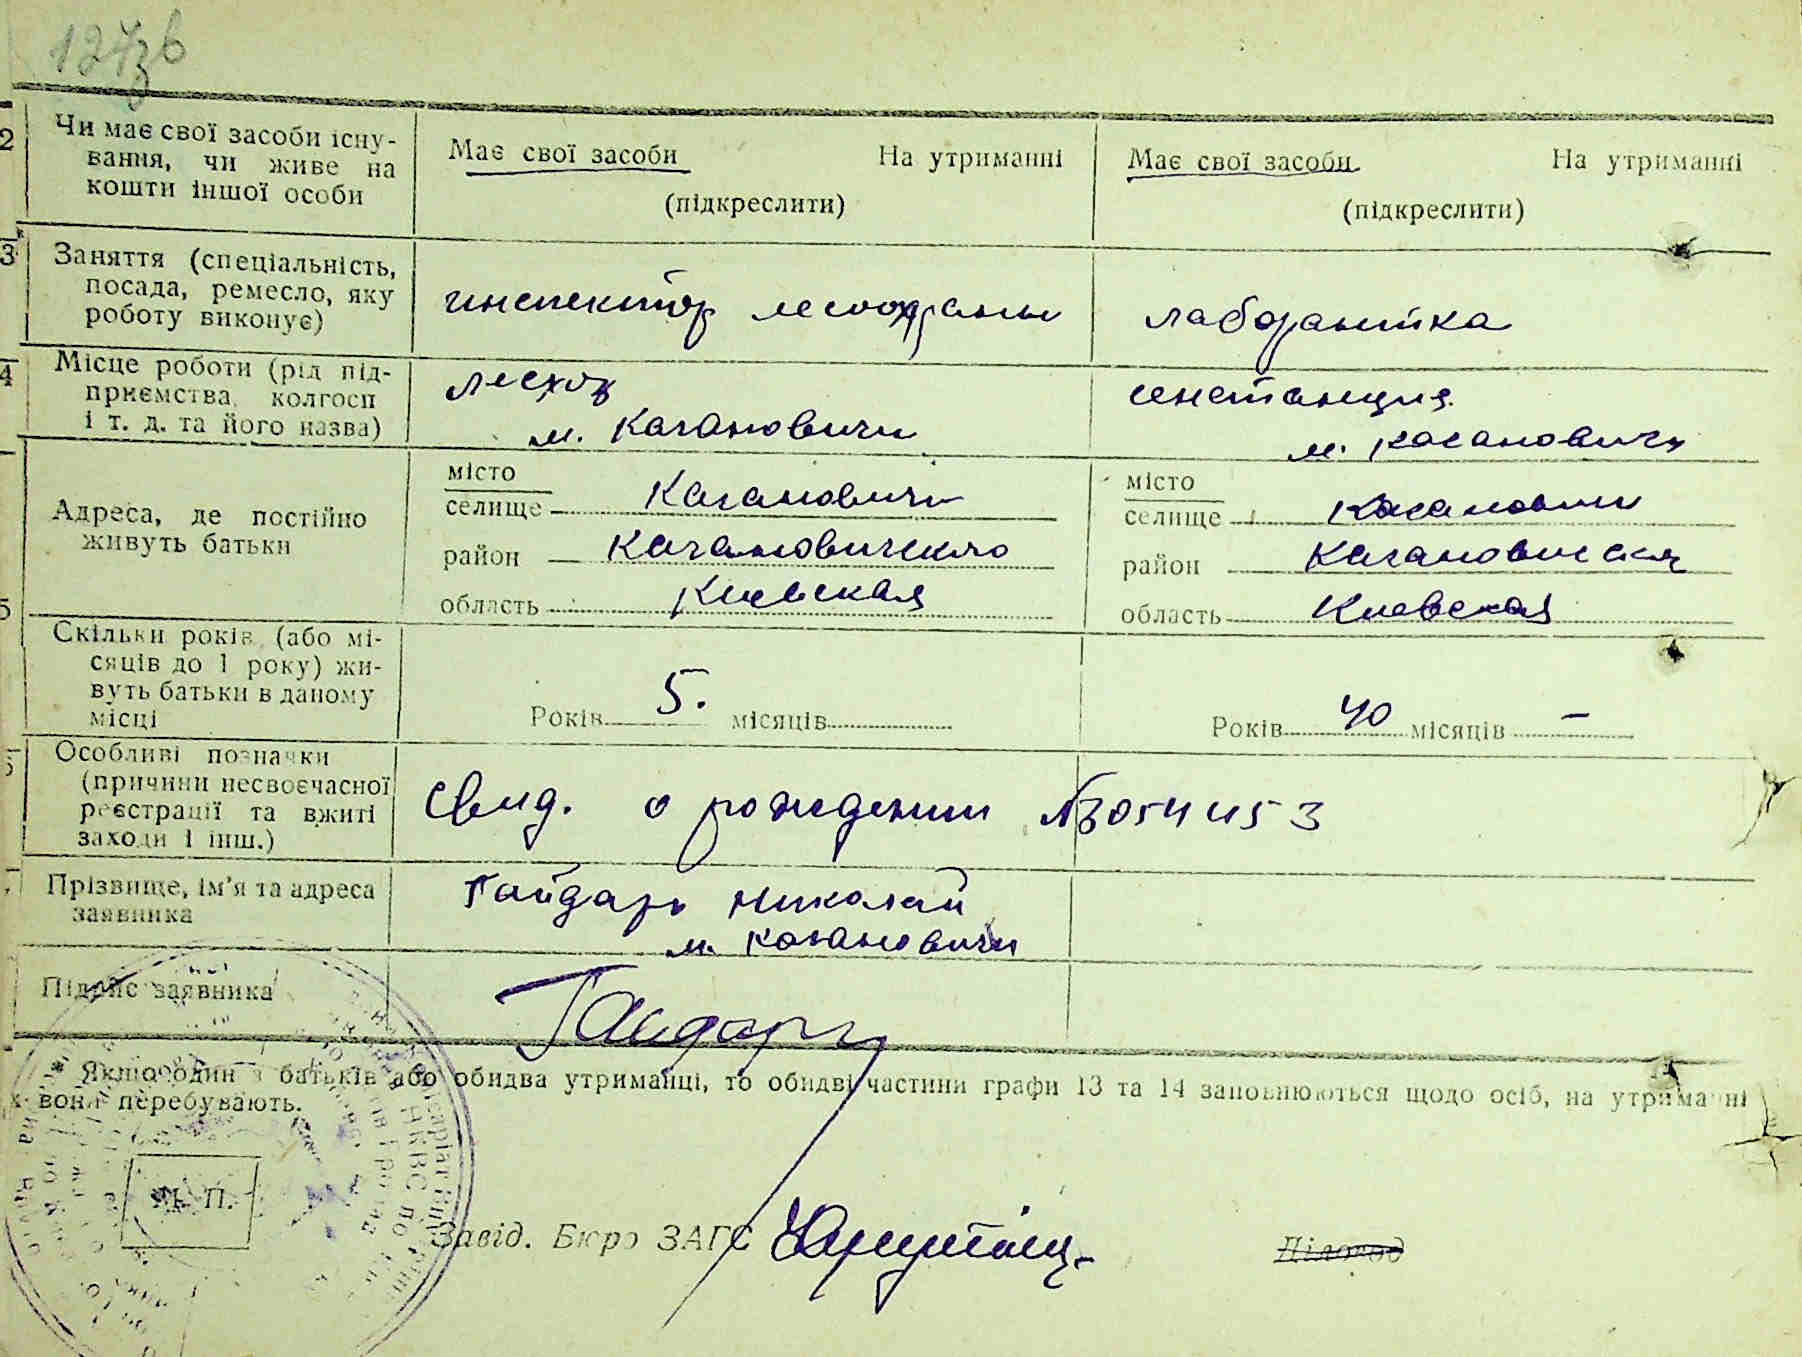 2
Чи має свої засоби існу-
вання, чи живе на
кошти іншої особи
Має свої засоби На утриманні
(підкреслити)
Має свої засоби На утриманні
(підкреслити)
3
Заняття (спеціальність,
посада, ремесло, яку
роботу виконує)
инспектор лесоохраны
лаборантка
4
Місце роботи (рід під-
приємства, колгосп
і т. д. та його назва)
лесхоз
м. Кагановичи
сенстанция
м. Кагановичи
5
Адреса, де постійно
живуть батьки
місто
селище Кагановичи
район Кагановичского
область Киевская
місто
селище Кагановичи
район
область Киевская
Скільки років (або мі-
сяців до 1 року) жи-
вуть батьки в даному
місці
Років 5. місяців
Років 40 місяців –
Особливі позначки
(причини несвоєчасної
реєстрації та вжиті
заходи і інш.)
Свид. о рождении №
Прізвище, ім'я та адреса
заявника
Гайдарь Николай
м. Кагановичи
Підпис заявника
Гайдарь
Якщо один з батьків або обидва утриманці, то обидві частини графи 13 та 14 заповнюються щодо осіб, на утриманні
вони перебувають.
М. П.
Завід. Бюро ЗАГС
Діловод